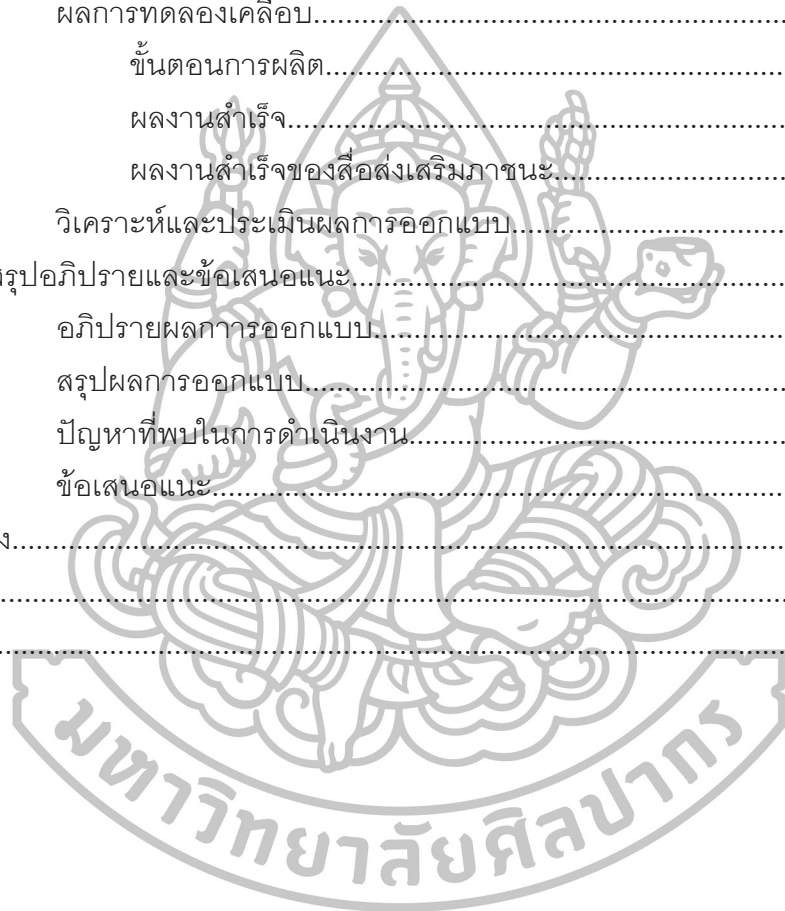 ผลการทดลองเคลือบ........................................................
ขั้นตอนการผลิต........................................................
ผลงานสำเร็จ........................................................
ผลงานสำเร็จของสื่อส่งเสริมภาชนะ........................................................
วิเคราะห์และประเมินผลการออกแบบ........................................................
สรุปอภิปรายและข้อเสนอแนะ........................................................
อภิปรายผลกาารออกแบบ........................................................
สรุปผลการออกแบบ........................................................
ปัญหาที่พบในการดำเนินงาน........................................................
ข้อเสนอแนะ........................................................
มหาวิทยาลัยศิลปากร